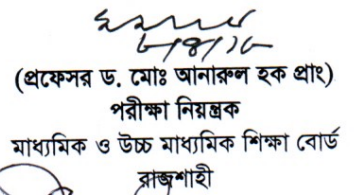 ৮/৪/১৮
(প্রফেসর ড. মোঃ আনারুল হক প্রাং)
পরীক্ষা নিয়ন্ত্রক
মাধ্যমিক ও উচ্চ মাধ্যমিক শিক্ষা বোর্ড
রাজশাহী